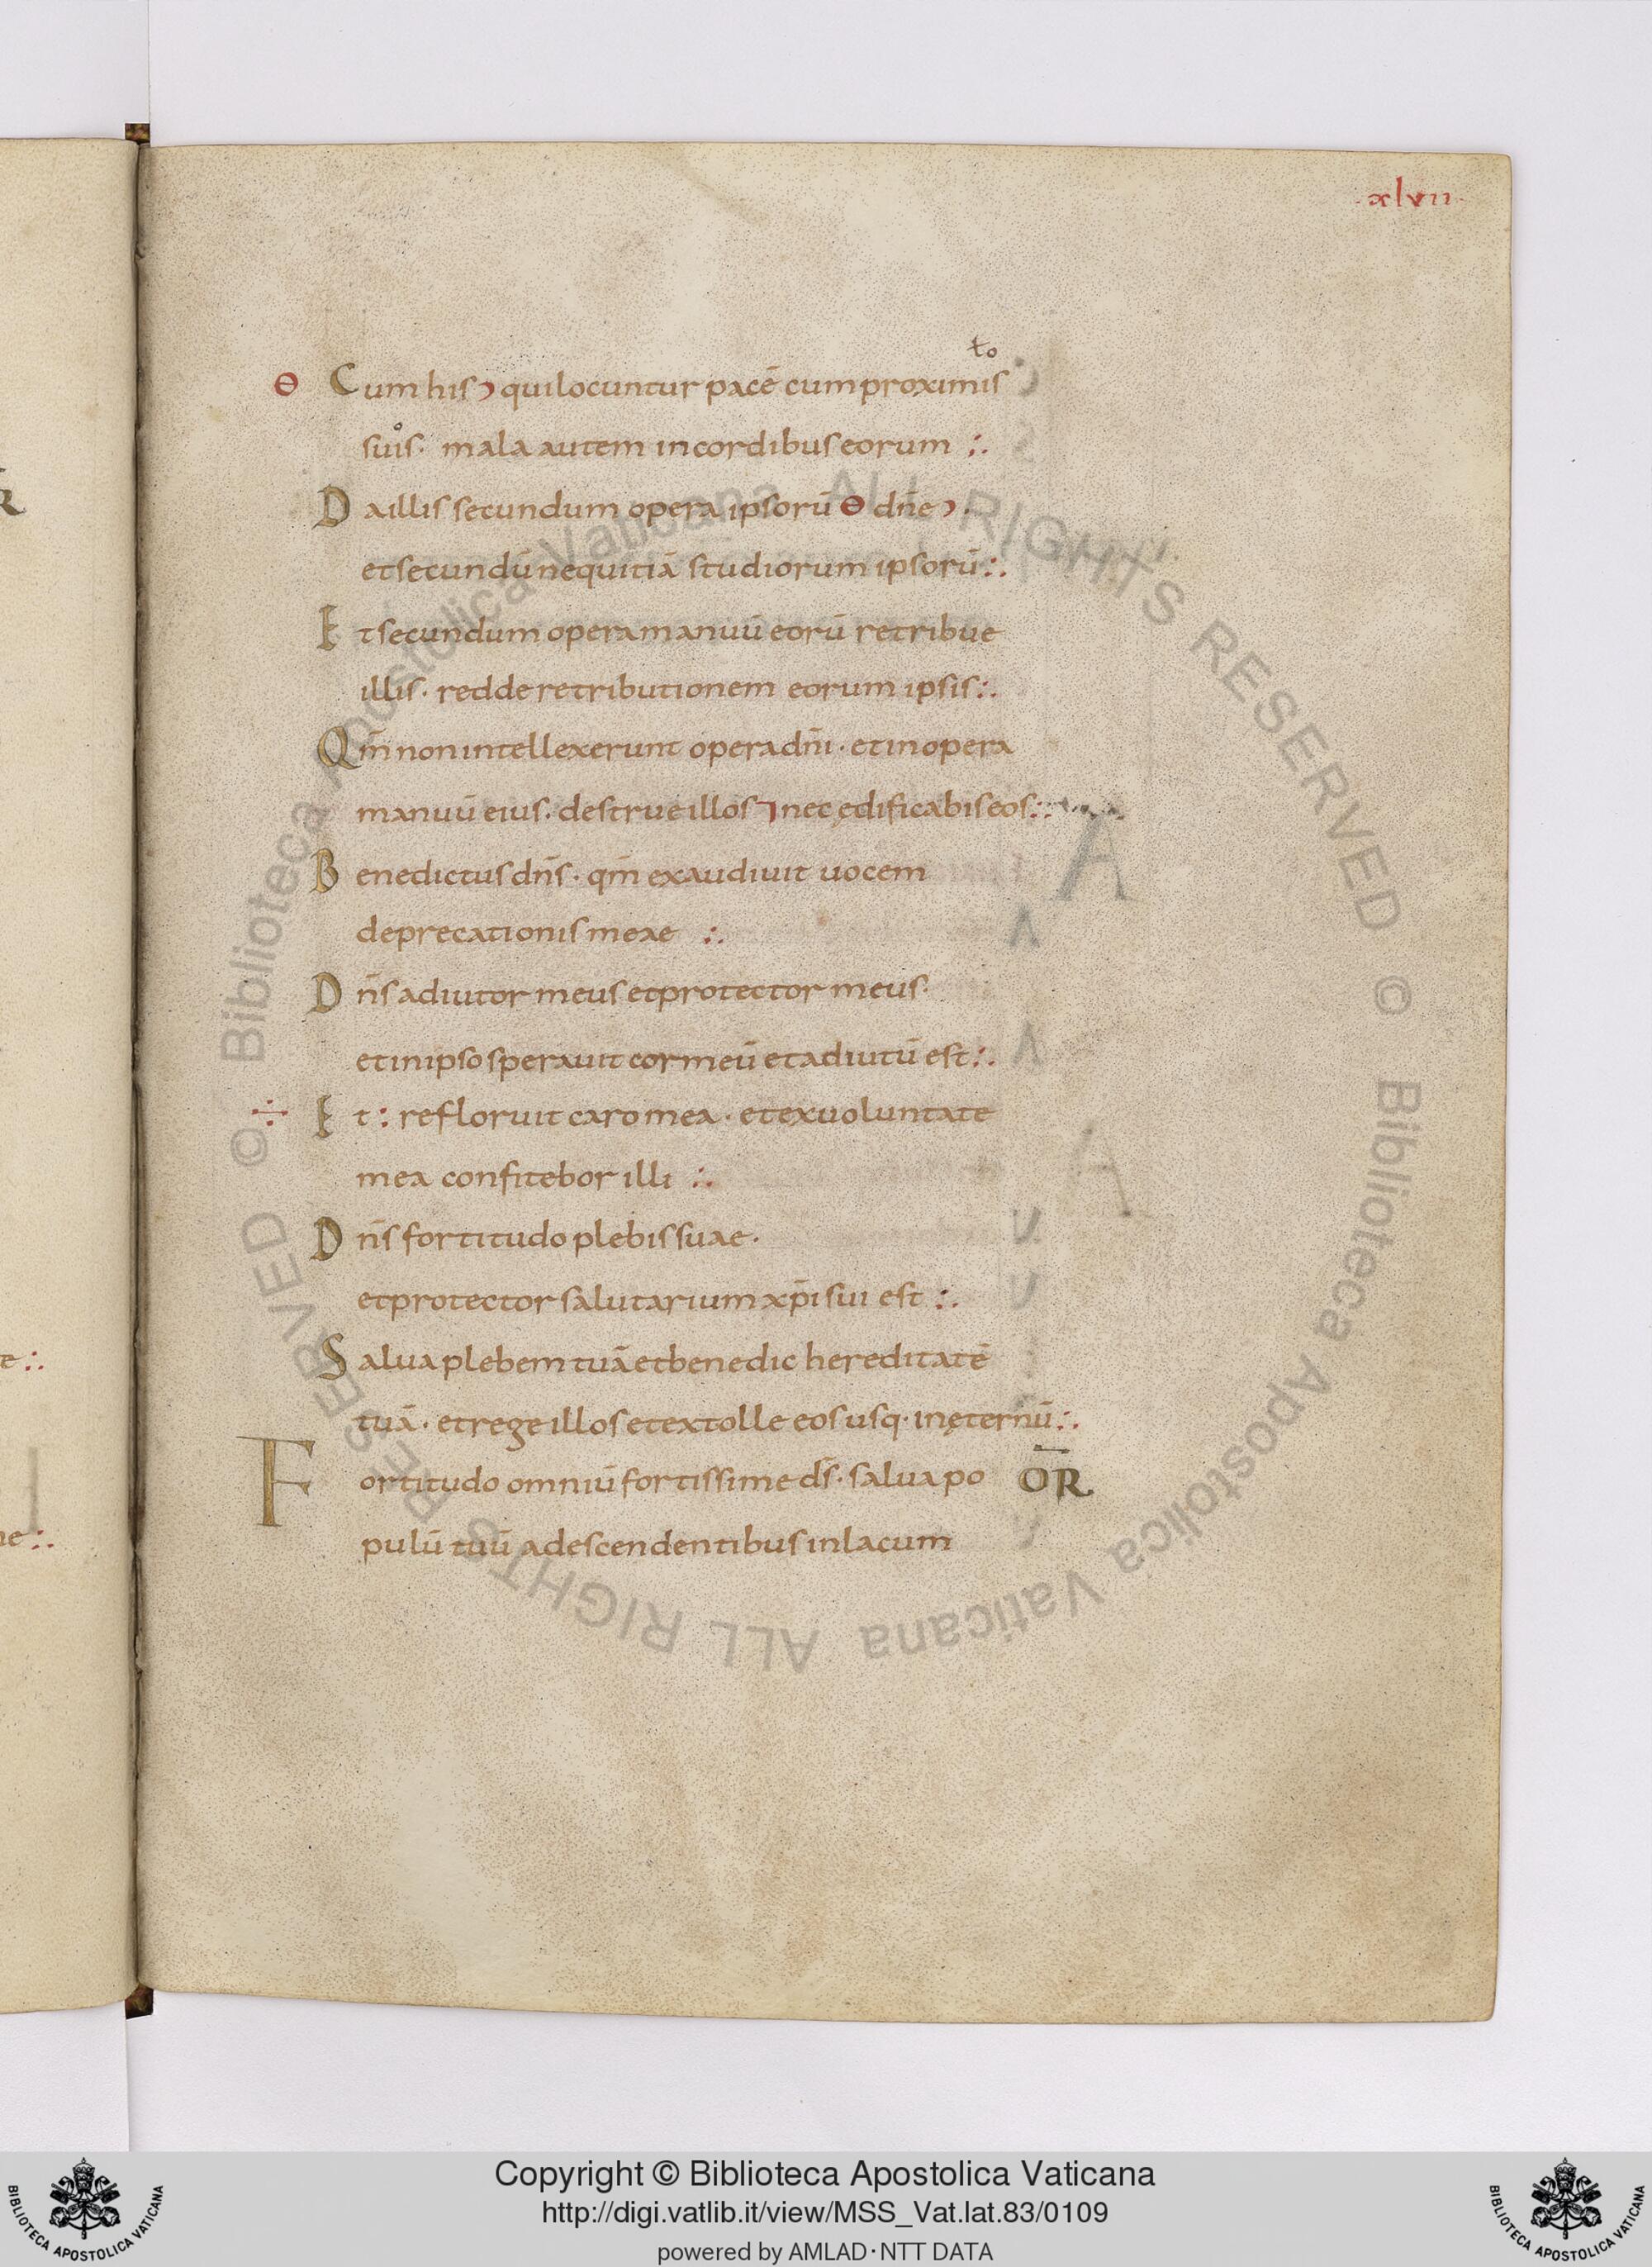 ·xlvii·
ƚo
ϴ Cum his quilocuntur pacē cumproximis
suis· mala autem incordibuseorum :.
Daillis secundum opera ipsorū ϴ dn̄e ·
etsecundū nequitiā studiorum ipsorū :.
Etsecundum operamanuū eorū retribue
illis· redderetributionem eorum ipsis :.
Qm̄ nonintellexerunt operadn̄i· etinopera
manuū eius· destrueillos nec ędificabiseos :.
Benedictusdn̄s· qm̄ exaudiuit uocem
deprecationismeae :.
Dn̄s adiutor meusetprotector meus·
etinipsosperauit cormeū etadiutū est :.
÷ Et : refloruit caromea· etexuoluntate
mea confitebor illi :.
Dn̄s fortitudo plebissuae·
etprotector salutarium xp̄i sui est :.
Salua plebem tuā etbenedic hereditatē
tuā· etregeillosetextolle eos usq· inęternū :.
Fortitudo omniū fortissime ds̄· salua po OR̄
pulū tuū adescendentibus inlacum
e :.
ne :.
© Biblioteca Apostolica Vaticana ALL RIGHTS RESERVED © Biblioteca Apostolica Vaticana ALL RIGHTS RESERVED
Copyright © Biblioteca Apostolica Vaticana
http://digi.vatlib.it/view/MSS_Vat.lat.83/0109
powered by AMLAD·NTT DATA
BIBLIOTECA APOSTOLICA VATICANA
BIBLIOTECA APOSTOLICA VATICANA